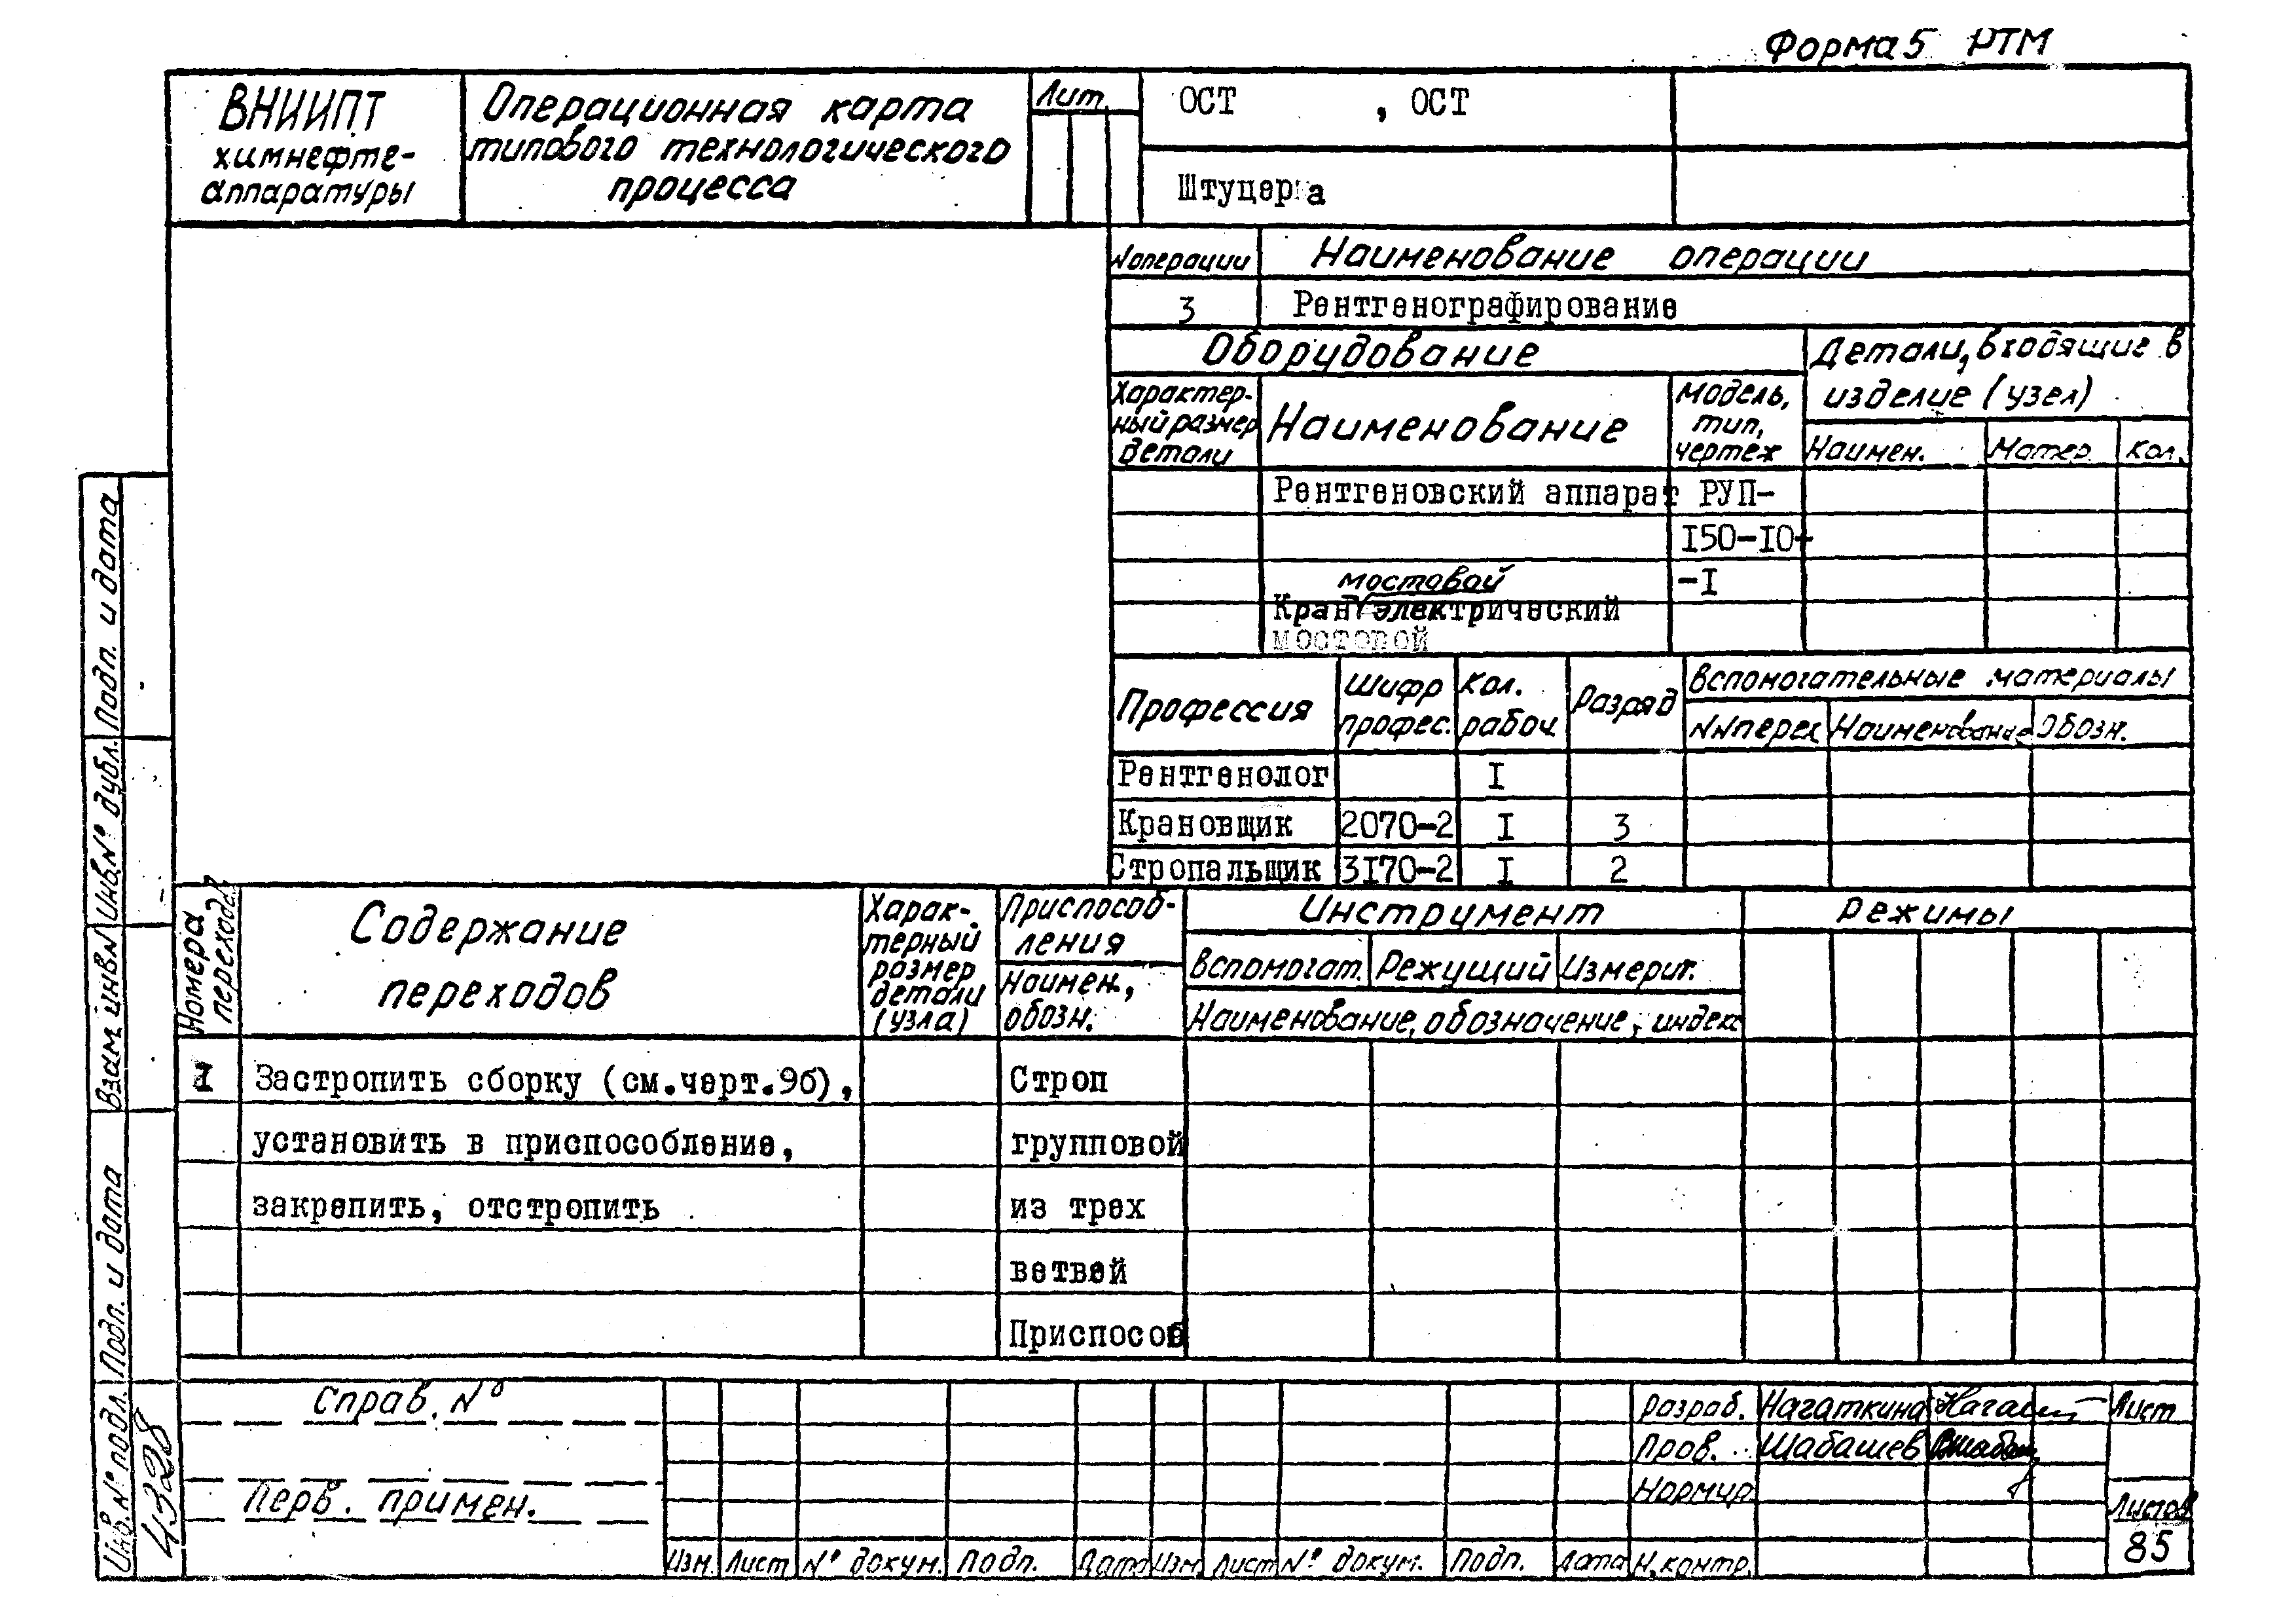 Форма 5 РТМ
ВНИИПТ
химнефте-
аппаратуры
Операционная карта
типового технологического
процесса
Лит.
ОСТ , ОСТ
Штуцера
№операции Наименование операции
3 Рентгенографирование
Оборудование
Детали, входящие в
изделие (узел)
Характер-
ный размер
детали
Наименование
Модель,
тип,
чертеж
Наимен. Матер. Кол.
Рентгеновский аппарат РУП-
I50-I0-
-I
мостовой
Кран электрический
мостовой
Профессия
Шифр
профес.
Кол.
рабоч.
Разряд
Вспомогательные материалы
№№перех Наименование Обозн.
Рентгенолог I
Крановщик 2070-2 I 3
Стропальщик 3I70-2 I 2
Номера
переходов
Содержание
переходов
Харак-
терный
размер
детали
(узла)
Приспособ-
ления
Наимен.,
обозн.
Инструмент
Вспомогат. Режущий Измерит.
Наименование, обозначение, индекс
Режимы
I Застропить сборку (см.черт.9б), Строп
установить в приспособление, групповой
закрепить, отстропить из трех
ветвей
Приспособ
Подп. и дата
Инв.№ дубл.
Взам. инв.№
Подп. и дата
Инв.№ подл.
4328
Справ. №
Перв. примен.
Изм. Лист № докум. Подп. Дата Изм. Лист № докум. Подп. Дата
Разраб. Нагаткина
Пров. Шабашев
Нормир.
Н.контр.
Лист
Листов
85